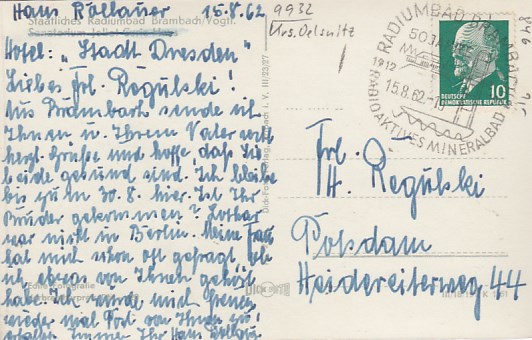 Hans Röllauer 15.8.62
Staatliches Radiumbad Brambach/Vogtl.
Sanatorium
Hotel: „Stadt Dresden"
Liebes Frl. Regulski!
Aus Brambach sende ich
Ihnen u. Ihrem Vater recht
herzl. Grüße und hoffe, daß Sie
beide gesund sind. Ich bleibe
bis zum 30.8. hier. Ist Ihr
Bruder gekommen? Lothar
war nicht in Berlin. Meine Frau
hat mich schon oft gefragt, ob
ich etwas von Ihnen gehört
habe. Ich würde mich freuen,
wieder mal Post von Ihnen zu
erhalten. Immer Ihr Hans Röllauer
9932
Krs. Oelsnitz
RADIUMBAD BRAMBACH
1912
15.8.62
RADIOAKTIVES MINERALBAD
10
DEUTSCHE
DEMOKRATISCHE REPUBLIK
Frl.
H. Regulski
Potsdam
Heidereiterweg 44